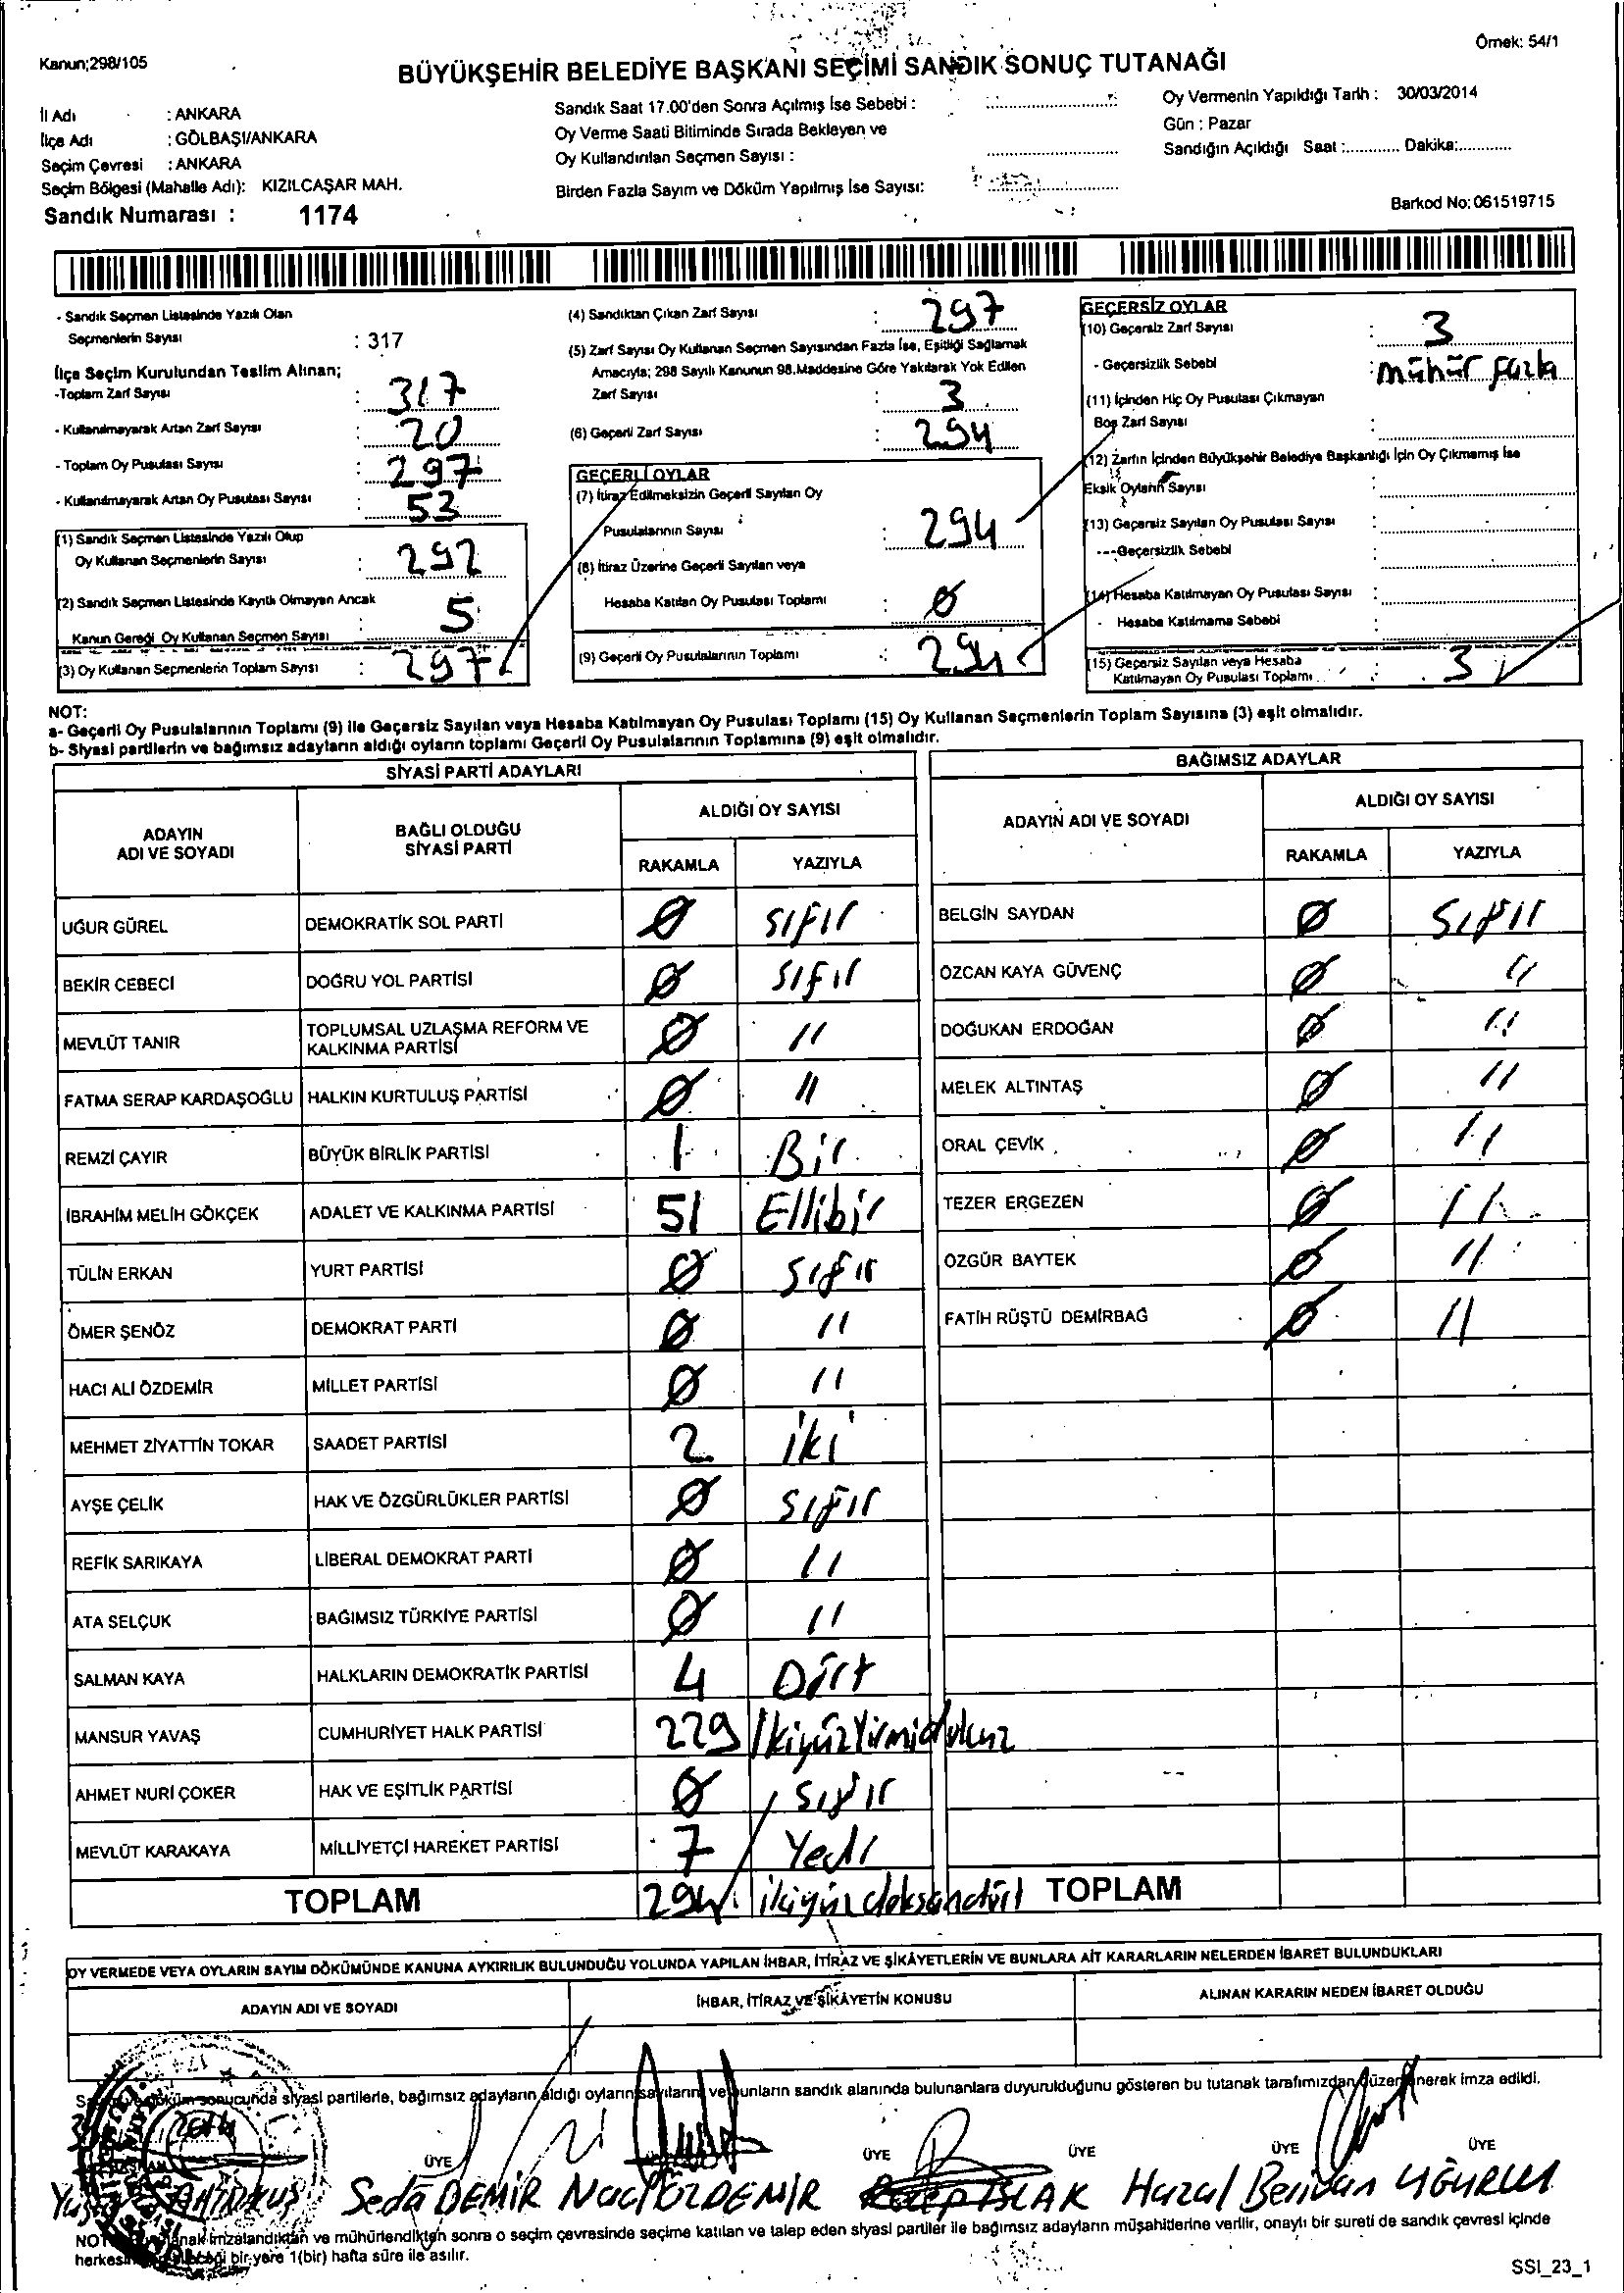 Örnek: 54/1
Kanun;298/105
BÜYÜKŞEHİR BELEDİYE BAŞKANI SEÇİMİ SANDIK SONUÇ TUTANAĞI
İl Adı : ANKARA
İlçe Adı : GÖLBAŞI/ANKARA
Seçim Çevresi : ANKARA
Seçim Bölgesi (Mahalle Adı): KIZILCAŞAR MAH.
Sandık Numarası : 1174
Sandık Saat 17.00'den Sonra Açılmış İse Sebebi :
Oy Verme Saati Bitiminde Sırada Bekleyen ve
Oy Kullandırılan Seçmen Sayısı :
Birden Fazla Sayım ve Döküm Yapılmış İse Sayısı:
Oy Vermenin Yapıldığı Tarih : 30/03/2014
Gün : Pazar
Sandığın Açıldığı Saat :............ Dakika:............
Barkod No: 061519715
- Sandık Seçmen Listesinde Yazılı Olan
Seçmenlerin Sayısı : 317
İlçe Seçim Kurulundan Teslim Alınan;
-Toplam Zarf Sayısı : 317
- Kullanılmayarak Artan Zarf Sayısı : 20
- Toplam Oy Pusulası Sayısı : 297
- Kullanılmayarak Artan Oy Pusulası Sayısı : 53
(1) Sandık Seçmen Listesinde Yazılı Olup
Oy Kullanan Seçmenlerin Sayısı : 292
(2) Sandık Seçmen Listesinde Kayıtlı Olmayan Ancak
Kanun Gereği Oy Kullanan Seçmen Sayısı : 5
(3) Oy Kullanan Seçmenlerin Toplam Sayısı : 297
(4) Sandıktan Çıkan Zarf Sayısı : 297
(5) Zarf Sayısı Oy Kullanan Seçmen Sayısından Fazla İse, Eşitliği Sağlamak
Amacıyla; 298 Sayılı Kanunun 98.Maddesine Göre Yakılarak Yok Edilen
Zarf Sayısı : 3
(6) Geçerli Zarf Sayısı : 294
GEÇERLİ OYLAR
(7) İtiraz Edilmeksizin Geçerli Sayılan Oy
Pusulalarının Sayısı : 294
(8) İtiraz Üzerine Geçerli Sayılan veya
Hesaba Katılan Oy Pusulası Toplamı : 0
(9) Geçerli Oy Pusulalarının Toplamı : 294
GEÇERSİZ OYLAR
(10) Geçersiz Zarf Sayısı : 3
- Geçersizlik Sebebi : mühür fazla
(11) İçinden Hiç Oy Pusulası Çıkmayan
Boş Zarf Sayısı :
(12) Zarfın İçinden Büyükşehir Belediye Başkanlığı İçin Oy Çıkmamış İse
Eksik Oyların Sayısı :
(13) Geçersiz Sayılan Oy Pusulası Sayısı :
---Geçersizlik Sebebi :
(14) Hesaba Katılmayan Oy Pusulası Sayısı :
- Hesaba Katılmama Sebebi :
(15) Geçersiz Sayılan veya Hesaba
Katılmayan Oy Pusulası Toplamı : 3
NOT:
a- Geçerli Oy Pusulalarının Toplamı (9) ile Geçersiz Sayılan veya Hesaba Katılmayan Oy Pusulası Toplamı (15) Oy Kullanan Seçmenlerin Toplam Sayısına (3) eşit olmalıdır.
b- Siyasi partilerin ve bağımsız adayların aldığı oyların toplamı Geçerli Oy Pusulalarının Toplamına (9) eşit olmalıdır.
SİYASİ PARTİ ADAYLARI
ADAYIN ADI VE SOYADI BAĞLI OLDUĞU SİYASİ PARTİ ALDIĞI OY SAYISI
RAKAMLA YAZIYLA
UĞUR GÜREL DEMOKRATİK SOL PARTİ 0 sıfır
BEKİR CEBECİ DOĞRU YOL PARTİSİ 0 sıfır
MEVLÜT TANIR TOPLUMSAL UZLAŞMA REFORM VE KALKINMA PARTİSİ 0 "
FATMA SERAP KARDAŞOĞLU HALKIN KURTULUŞ PARTİSİ 0 "
REMZİ ÇAYIR BÜYÜK BİRLİK PARTİSİ 1 Bir
İBRAHİM MELİH GÖKÇEK ADALET VE KALKINMA PARTİSİ 51 Ellibir
TÜLİN ERKAN YURT PARTİSİ 0 sıfır
ÖMER ŞENÖZ DEMOKRAT PARTİ 0 "
HACI ALİ ÖZDEMİR MİLLET PARTİSİ 0 "
MEHMET ZİYATTİN TOKAR SAADET PARTİSİ 2 iki
AYŞE ÇELİK HAK VE ÖZGÜRLÜKLER PARTİSİ 0 sıfır
REFİK SARIKAYA LİBERAL DEMOKRAT PARTİ 0 "
ATA SELÇUK BAĞIMSIZ TÜRKİYE PARTİSİ 0 "
SALMAN KAYA HALKLARIN DEMOKRATİK PARTİSİ 4 Dört
MANSUR YAVAŞ CUMHURİYET HALK PARTİSİ 229 İkiyüzYirmidokuz
AHMET NURİ ÇOKER HAK VE EŞİTLİK PARTİSİ 0 sıfır
MEVLÜT KARAKAYA MİLLİYETÇİ HAREKET PARTİSİ 7 Yedi
TOPLAM 294 ikiyüzdoksandört
BAĞIMSIZ ADAYLAR
ADAYIN ADI VE SOYADI ALDIĞI OY SAYISI
RAKAMLA YAZIYLA
BELGİN SAYDAN 0 Sıfır
ÖZCAN KAYA GÜVENÇ 0 "
DOĞUKAN ERDOĞAN 0 "
MELEK ALTINTAŞ 0 "
ORAL ÇEVİK 0 "
TEZER ERGEZEN 0 "
ÖZGÜR BAYTEK 0 "
FATİH RÜŞTÜ DEMİRBAĞ 0 "
TOPLAM
OY VERMEDE VEYA OYLARIN SAYIM DÖKÜMÜNDE KANUNA AYKIRILIK BULUNDUĞU YOLUNDA YAPILAN İHBAR, İTİRAZ VE ŞİKÂYETLERİN VE BUNLARA AİT KARARLARIN NELERDEN İBARET BULUNDUKLARI
ADAYIN ADI VE SOYADI İHBAR, İTİRAZ VE ŞİKÂYETİN KONUSU ALINAN KARARIN NEDEN İBARET OLDUĞU
sonucunda siyasi partilerle, bağımsız adayların aldığı oyların sayılarını ve bunların sandık alanında bulunanlara duyurulduğunu gösteren bu tutanak tarafımızdan düzenlenerek imza edildi.
ÜYE ÜYE ÜYE ÜYE ÜYE
Seda DEMİR Naci ÖZDEMİR Recep ISLAK Hazal Berivan UĞURLU
imzalandıktan ve mühürlendikten sonra o seçim çevresinde seçime katılan ve talep eden siyasi partiler ile bağımsız adayların müşahitlerine verilir, onaylı bir sureti de sandık çevresi içinde
bir yere 1(bir) hafta süre ile asılır.
SSI_23_1